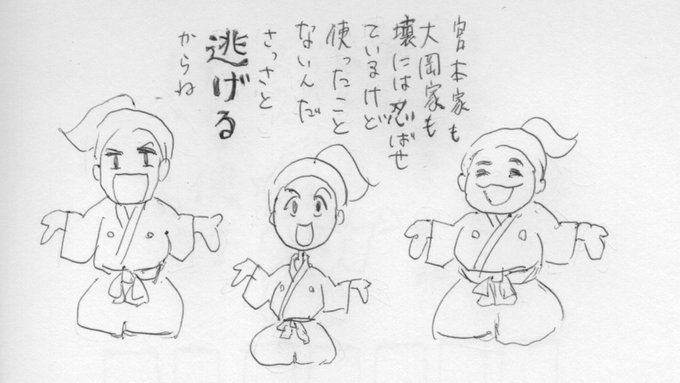 宮本家も
大岡家も
壊には忍ばせ
ているけど
使ったこと
ないんだ
さっさと
逃げる
からね